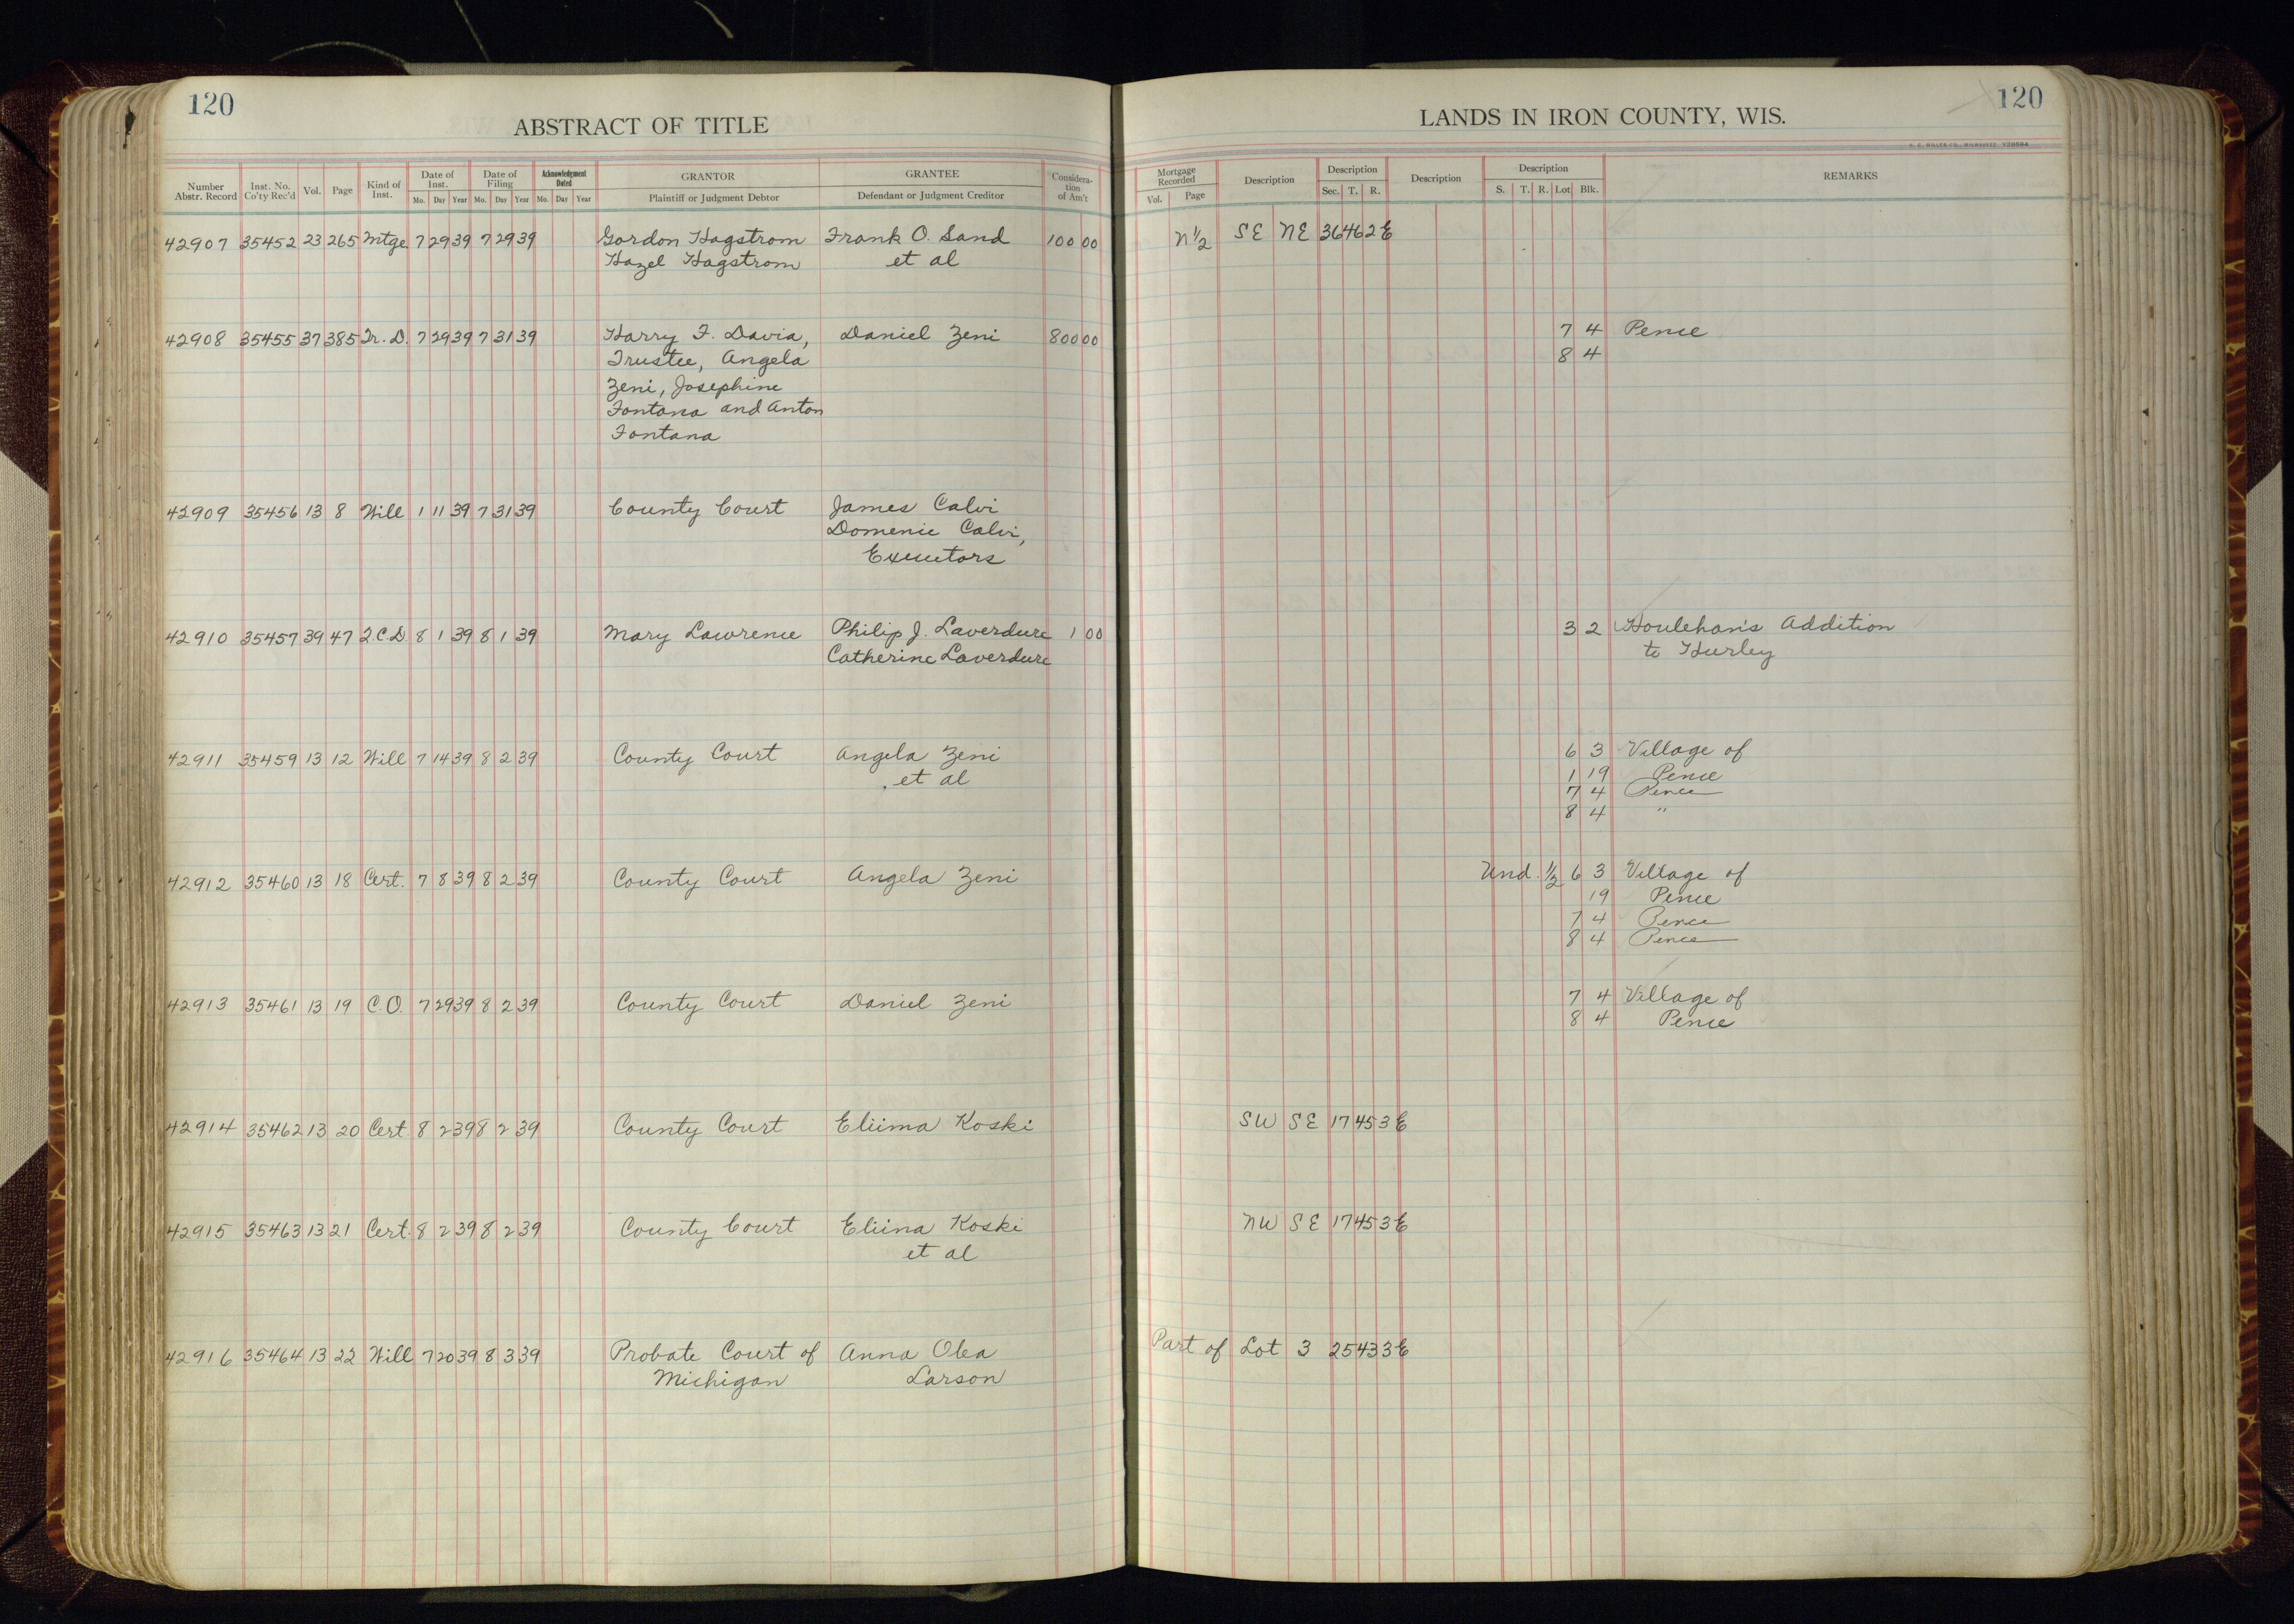 120
ABSTRACT OF TITLE
Number Abstr. Record Inst. No. Co'ty Rec'd Vol. Page Kind of Inst. Date of Inst. Mo. Day Year Date of Filing Mo. Day Year Acknowledgment Dated Mo. Day Year GRANTOR Plaintiff or Judgment Debtor GRANTEE Defendant or Judgment Creditor Considera-tion of Am't
42907 35452 23 265 Mtge 7 29 39 7 29 39 Gordon Hagstrom Frank O. Sand 100 00
Hazel Hagstrom et al
42908 35455 37 385 Tr. D. 7 29 39 7 31 39 Harry F. Davia, Daniel Zeni 800 00
Trustee, Angela
Zeni, Josephine
Fontana and Anton
Fontana
42909 35456 13 8 Will 1 11 39 7 31 39 County Court James Calvi
Domenic Calvi,
Executors
42910 35457 39 47 Q.C.D. 8 1 39 8 1 39 Mary Lawrence Philip J. Laverdure 1 00
Catherine Laverdure
42911 35459 13 12 Will 7 14 39 8 2 39 County Court Angela Zeni
et al
42912 35460 13 18 Cert. 7 8 39 8 2 39 County Court Angela Zeni
42913 35461 13 19 C.O. 7 29 39 8 2 39 County Court Daniel Zeni
42914 35462 13 20 Cert. 8 2 39 8 2 39 County Court Eliima Koski
42915 35463 13 21 Cert. 8 2 39 8 2 39 County Court Eliina Koski
et al
42916 35464 13 22 Will 7 20 39 8 3 39 Probate Court of Anna Olea
Michigan Larson
120
LANDS IN IRON COUNTY, WIS.
H. C. MILLER CO., MILWAUKEE Y29594
Mortgage Recorded Vol. Page Description Description Sec. T. R. Description Description S. T. R. Lot Blk. REMARKS
N 1/2 SE NE 36 46 2E
7 4 Pence
8 4
3 2 Houlehan's Addition
to Hurley
6 3 Village of
1 19 Pence
7 4 Pence
8 4 "
Und. 1/2 6 3 Village of
19 Pence
7 4 Pence
8 4 Pence
7 4 Village of
8 4 Pence
SW SE 17 45 3E
NW SE 17 45 3E
Part of Lot 3 25 43 3E